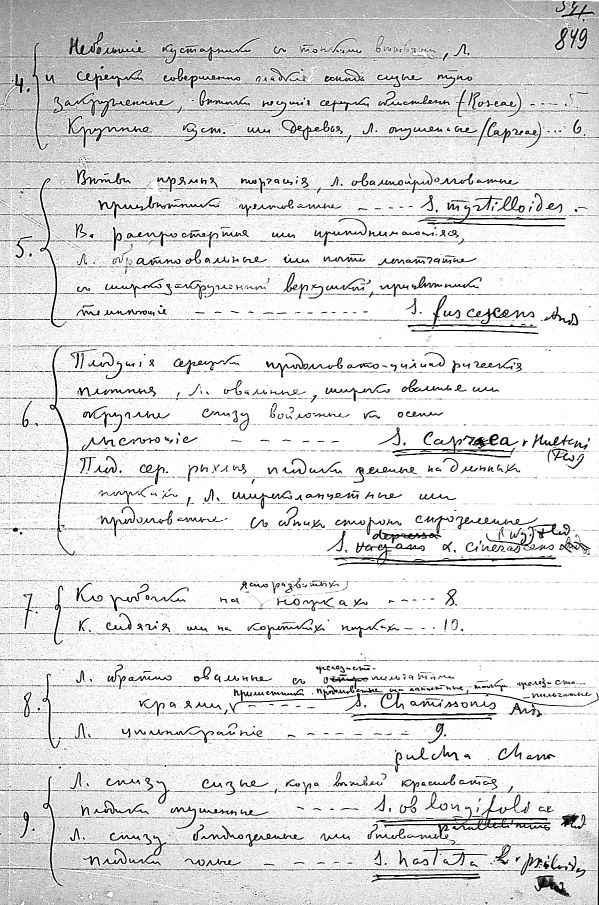 849
4. Небольшие кустарники съ тонкими вѣтвями, Л.
и сережки совершенно гладкія снизу сизые тупо
закругленные, вѣточки несущія сережки облиственны (Roseae) ---- 5.
Крупные куст. или деревья, Л. опушенные (Capreae) ... 6.
5. Вѣтви прямыя торчащія, Л. овальнопродолговатые
прицвѣтники желтоватые ----- S. myrtilloides. -
В. распростертыя или приподнимающіяся,
Л. обратноовальные или почти лопатчатые
съ широкозакругленной верхушкой, прицвѣтники
темнѣющіе -------------- S. fuscescens And
6. Плодущія сережки продолговато-цилиндрическія
плотныя, Л. овальные, широко овальные или
округлые снизу войлочные къ осени
лысѣющіе ------ S. Caprea, + Hulteni
(Flod)
Плод. сер. рыхлыя, плодики зеленые на длинныхъ
ножкахъ, Л. широколанцетные или
продолговатые съ обѣихъ сторонъ сѣрозеленые
depressa
S. vagans α. cinerascens
7. Коробочки на ясно развитыхъ ножкахъ ----- 8.
К. сидячія или на короткихъ ножкахъ --- 10.
8. Л. обратно овальные съ железист. пильчатыми
прилистники продолговатые или ланцетные, тонко железисто-пильчатые
краями, ------ S. Chamissonis And.
Л. цѣльнокрайніе -------- 9.
pulchra Cham
9. Л. снизу сизые, кора вѣтвей красноватая,
плодики опушенные ----- S. oblongifoliae
parallelinervis Flod
Л. снизу блѣднозеленые или
плодики голые -- ----- S. hastata L.